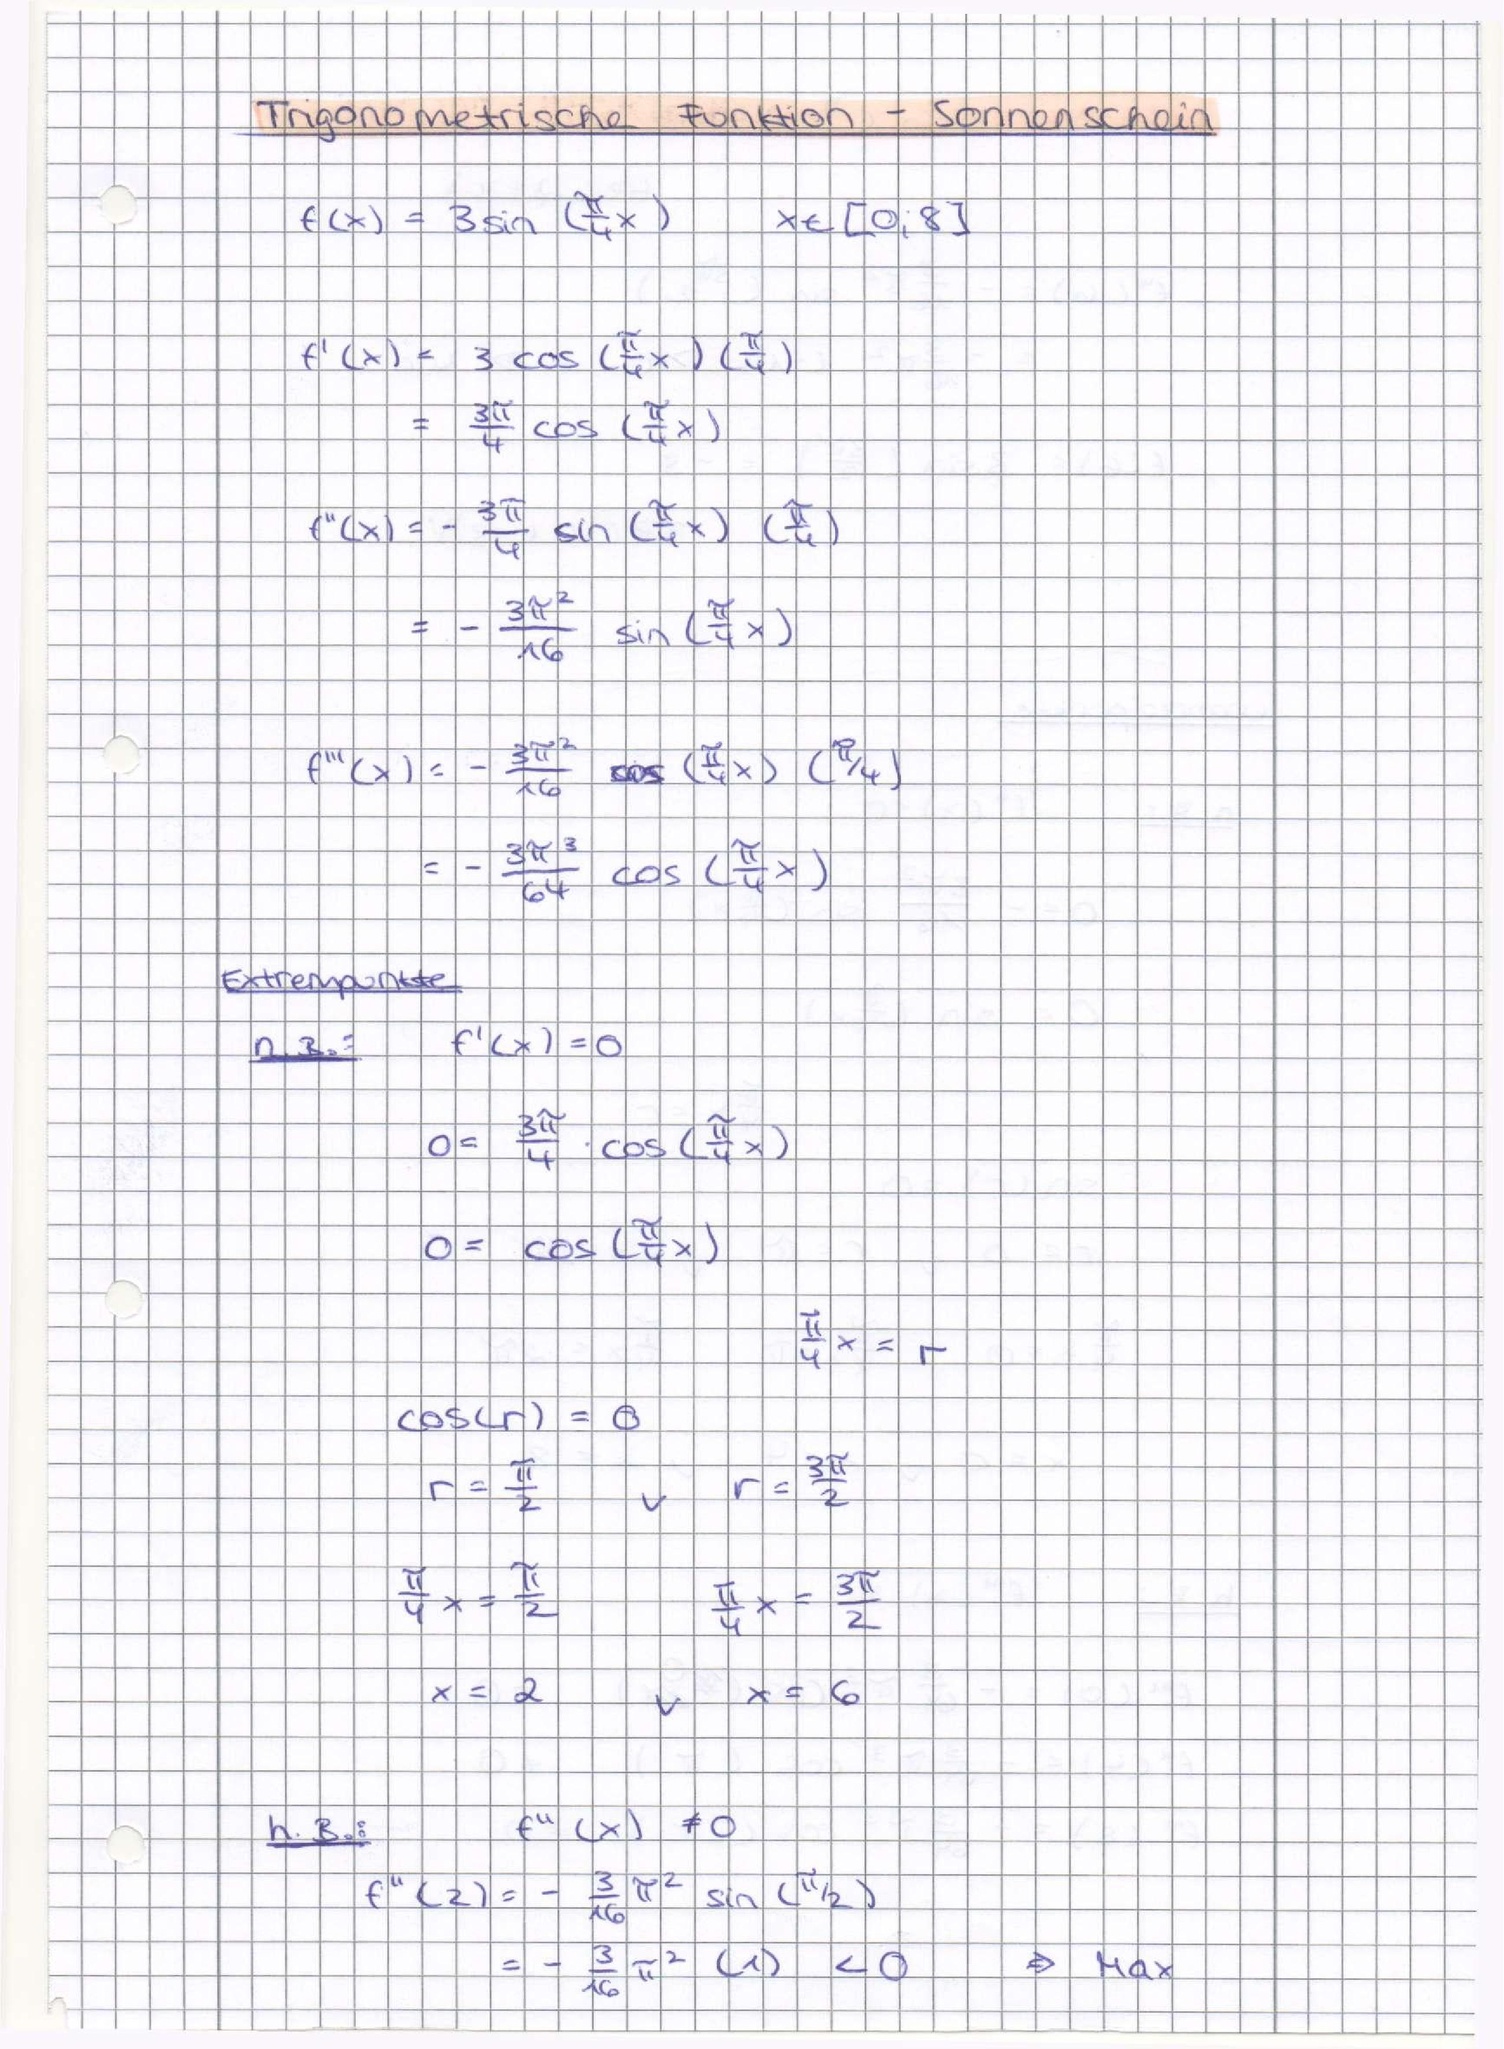 Trigonometrische Funktion - Sonnenschein
f(x) = 3 sin (π/4 x) x ∈ [0; 8]
f'(x) = 3 cos (π/4 x) (π/4)
= 3π/4 cos (π/4 x)
f''(x) = - 3π/4 sin (π/4 x) (π/4)
= - 3π²/16 sin (π/4 x)
f'''(x) = - 3π²/16 cos (π/4 x) (π/4)
= - 3π³/64 cos (π/4 x)
Extrempunkte
n.B.: f'(x) = 0
0 = 3π/4 · cos (π/4 x)
0 = cos (π/4 x)
π/4 x = r
cos(r) = 0
r = π/2 ∨ r = 3π/2
π/4 x = π/2 π/4 x = 3π/2
x = 2 ∨ x = 6
h.B.: f''(x) ≠ 0
f''(2) = - 3/16 π² sin (π/2)
= - 3/16 π² (1) < 0 ⇒ Max